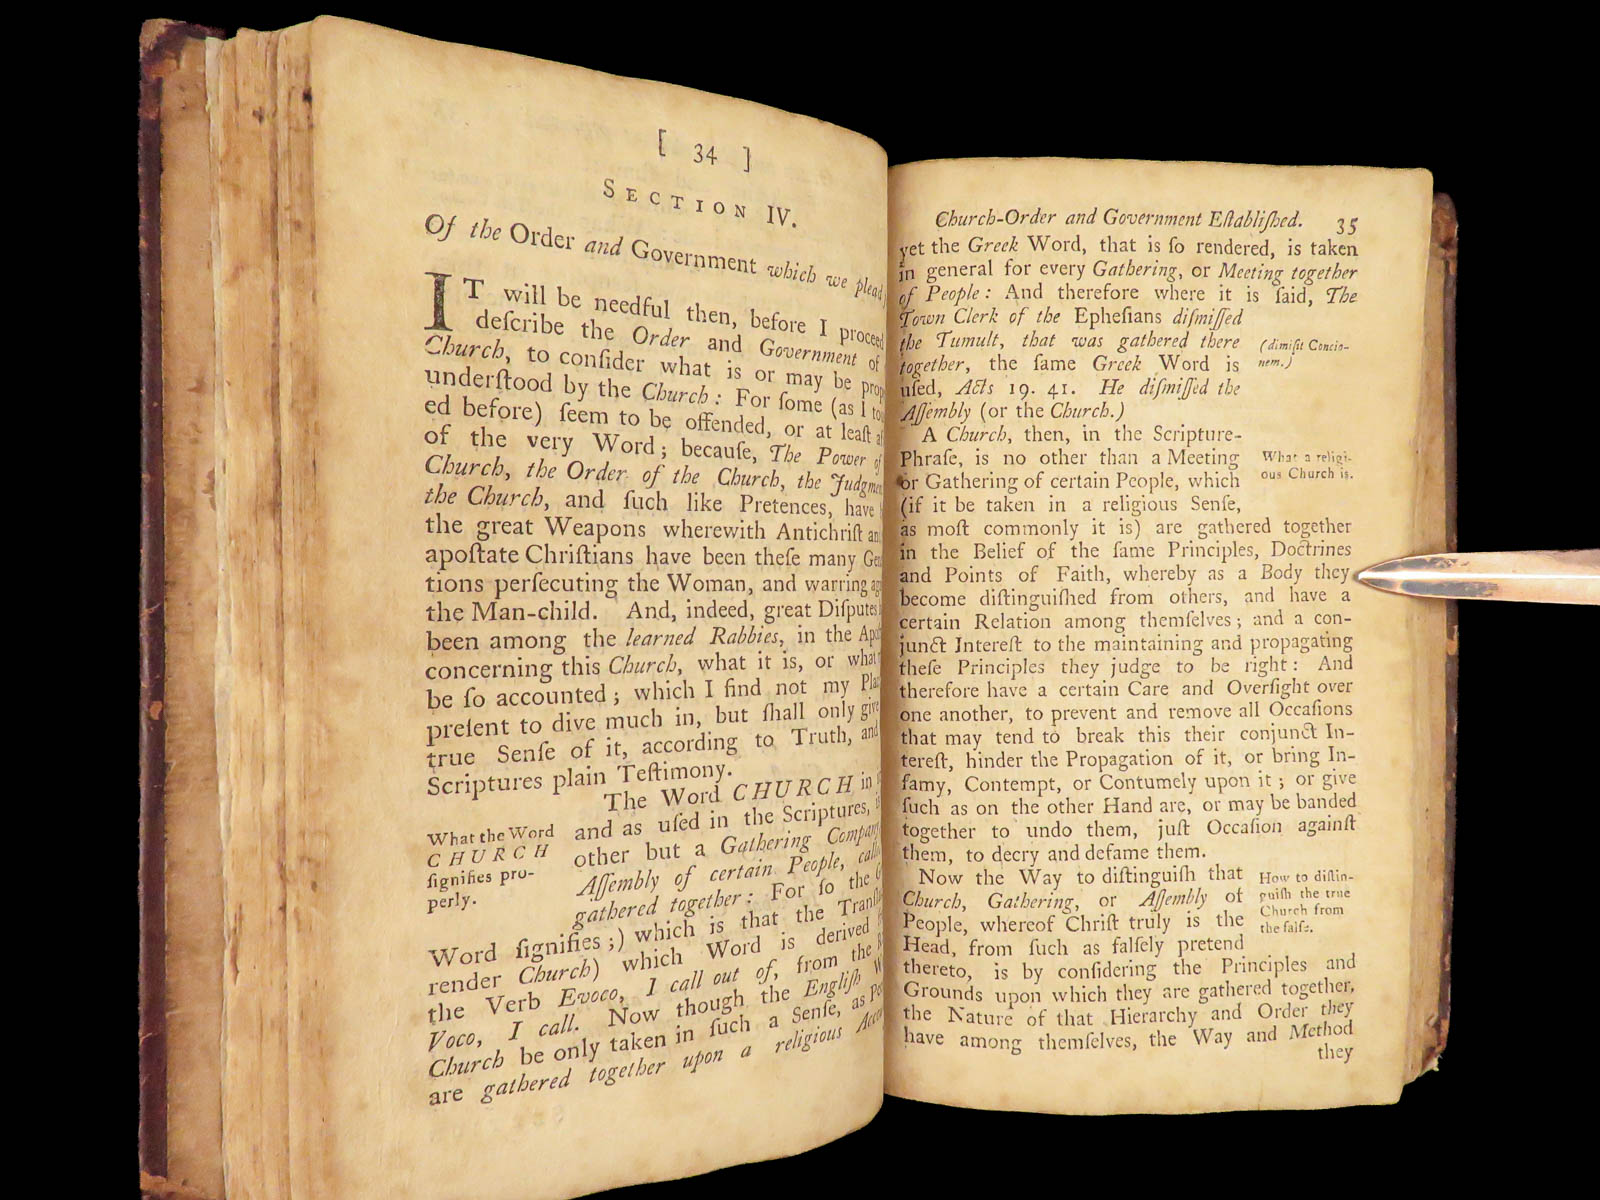 [ 34 ]
SECTION IV.
Of the Order and Government which we plead
IT will be needful then, before I proceed
deſcribe the Order and Government of
Church, to conſider what is or may be
underſtood by the Church: For ſome (as I
ed before) ſeem to be offended, or at leaſt
of the very Word; becauſe, The Power of
Church, the Order of the Church, the
the Church, and ſuch like Pretences, have
the great Weapons wherewith Antichriſt
apoſtate Chriſtians have been theſe many
tions perſecuting the Woman, and warring
the Man-child. And, indeed, great Diſputes
been among the learned Rabbies, in the
concerning this Church, what it is, or what
be ſo accounted; which I find not my
preſent to dive much in, but ſhall only give
true Senſe of it, according to Truth, and
Scriptures plain Teſtimony.
What the Word
CHURCH
ſignifies pro-
perly.
The Word CHURCH in
and as uſed in the Scriptures,
other but a Gathering
Aſſembly of certain People,
gathered together: For ſo the
Word ſignifies;) which is that the
render Church) which Word is derived
the Verb Evoco, I call out of, from the
Voco, I call. Now though the Engliſh
Church be only taken in ſuch a Senſe, as
are gathered together upon a religious
Church-Order and Government Eſtabliſhed. 35
yet the Greek Word, that is ſo rendered, is taken
in general for every Gathering, or Meeting together
of People: And therefore where it is ſaid, The
Town Clerk of the Epheſians diſmiſſed
the Tumult, that was gathered there
together, the ſame Greek Word is
uſed, Acts 19. 41. He diſmiſſed the
Aſſembly (or the Church.)
(dimiſit Concio-
nem.)
A Church, then, in the Scripture-
Phraſe, is no other than a Meeting
or Gathering of certain People, which
(if it be taken in a religious Senſe,
What a religi-
ous Church is.
as moſt commonly it is) are gathered together
in the Belief of the ſame Principles, Doctrines
and Points of Faith, whereby as a Body they
become diſtinguiſhed from others, and have a
certain Relation among themſelves; and a con-
junct Intereſt to the maintaining and propagating
theſe Principles they judge to be right: And
therefore have a certain Care and Overſight over
one another, to prevent and remove all Occaſions
that may tend to break this their conjunct In-
tereſt, hinder the Propagation of it, or bring In-
famy, Contempt, or Contumely upon it; or give
ſuch as on the other Hand are, or may be banded
together to undo them, juſt Occaſion againſt
them, to decry and defame them.
Now the Way to diſtinguiſh that
Church, Gathering, or Aſſembly of
People, whereof Chriſt truly is the
Head, from ſuch as falſely pretend
How to diſtin-
guiſh the true
Church from
the falſe.
thereto, is by conſidering the Principles and
Grounds upon which they are gathered together,
the Nature of that Hierarchy and Order they
have among themſelves, the Way and Method
they